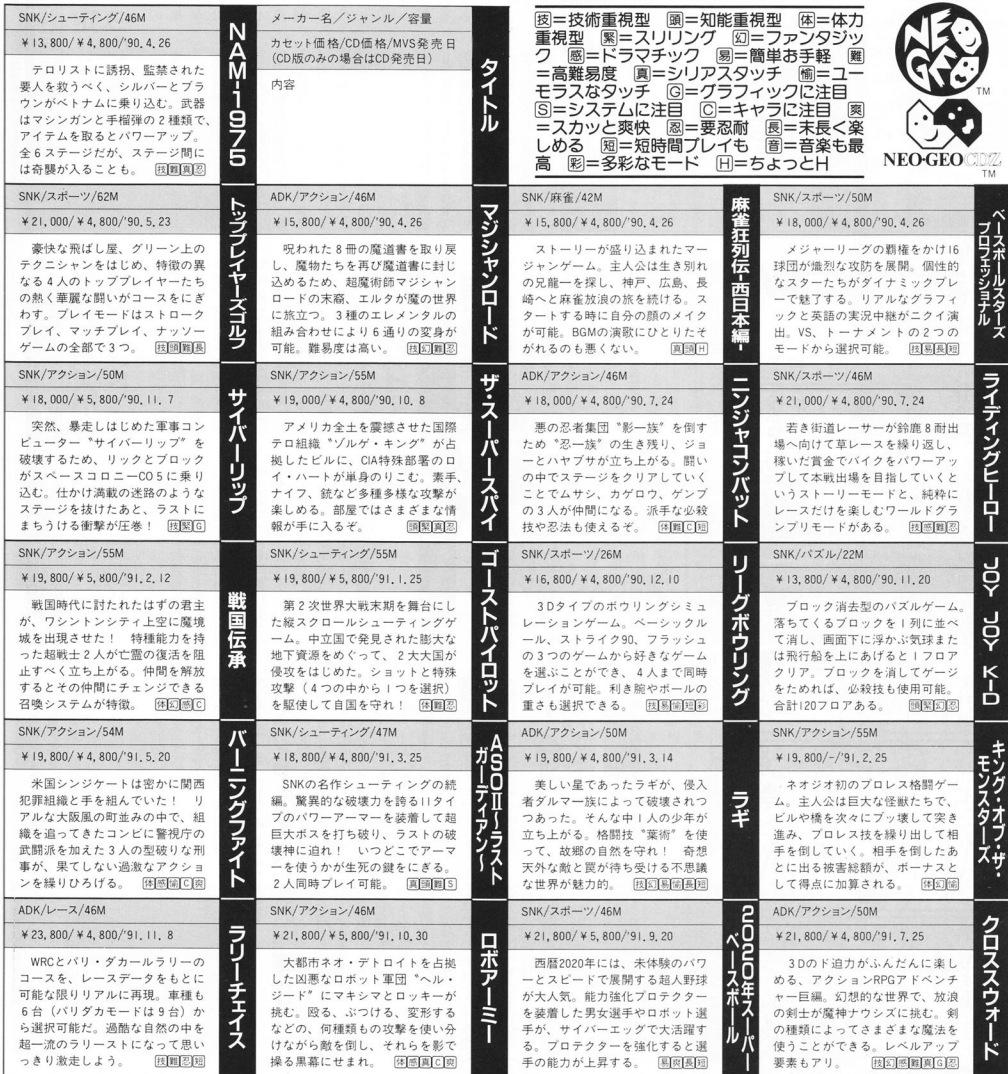 SNK/シューティング/46M
￥13,800/￥4,800/'90.4.26
テロリストに誘拐、監禁された
要人を救うべく、シルバーとブラ
ウンがベトナムに乗り込む。武器
はマシンガンと手榴弾の2種類で、
アイテムを取るとパワーアップ。
全6ステージだが、ステージ間に
は奇襲が入ることも。 技難真忍
NAM-1975
メーカー名／ジャンル／容量
カセット価格/CD価格/MVS発売日
(CD版のみの場合はCD発売日)
内容
タイトル
技=技術重視型 頭=知能重視型 体=体力
重視型 緊=スリリング 幻=ファンタジッ
ク 感=ドラマチック 易=簡単お手軽 難
=高難易度 真=シリアスタッチ 愉=ユー
モラスなタッチ G=グラフィックに注目
S=システムに注目 C=キャラに注目 爽
=スカッと爽快 忍=要忍耐 長=末長く楽
しめる 短=短時間プレイも 音=音楽も最
高 彩=多彩なモード H=ちょっとH
NEO GEO
TM
NEO・GEO CDZ
TM
SNK/スポーツ/62M
￥21,000/￥4,800/'90.5.23
豪快な飛ばし屋、グリーン上の
テクニシャンをはじめ、特徴の異
なる4人のトッププレイヤーたち
の熱く華麗な闘いがコースをにぎ
わす。プレイモードはストローク
プレイ、マッチプレイ、ナッソー
ゲームの全部で3つ。 技頭難長
トッププレイヤーズゴルフ
ADK/アクション/46M
￥15,800/￥4,800/'90.4.26
呪われた8冊の魔道書を取り戻
し、魔物たちを再び魔道書に封じ
込めるため、超魔術師マジシャン
ロードの末裔、エルタが魔の世界
に旅立つ。3種のエレメンタルの
組み合わせにより6通りの変身が
可能。難易度は高い。 技幻難忍
マジシャンロード
SNK/麻雀/42M
￥15,800/￥4,800/'90.4.26
ストーリーが盛り込まれたマー
ジャンゲーム。主人公は生き別れ
の兄龍一を探し、神戸、広島、長
崎へと麻雀放浪の旅を続ける。ス
タートする時に自分の顔のメイク
が可能。BGMの演歌にひとりたそ
がれるのも悪くない。 真頭H
麻雀狂列伝-西日本編-
SNK/スポーツ/50M
￥18,000/￥4,800/'90.4.26
メジャーリーグの覇権をかけ16
球団が熾烈な攻防を展開。個性的
なスターたちがダイナミックプレ
ーで魅了する。リアルなグラフィ
ックと英語の実況中継がニクイ演
出。VS、トーナメントの2つの
モードから選択可能。 技易長短
ベースボールスターズ
プロフェッショナル
SNK/アクション/50M
￥18,000/￥5,800/'90.11.7
突然、暴走しはじめた軍事コン
ピューター〝サイバーリップ〟を
破壊するため、リックとブロック
がスペースコロニーCO5に乗り
込む。仕かけ満載の迷路のような
ステージを抜けたあと、ラストに
まちうける衝撃が圧巻！ 技緊G
サイバーリップ
SNK/アクション/55M
￥19,000/￥4,800/'90.10.8
アメリカ全土を震撼させた国際
テロ組織〝ゾルゲ・キング〟が占
拠したビルに、CIA特殊部署のロ
イ・ハートが単身のりこむ。素手、
ナイフ、銃など多種多様な攻撃が
楽しめる。部屋ではさまざまな情
報が手に入るぞ。 頭緊真忍
ザ・スーパースパイ
ADK/アクション/46M
￥18,000/￥4,800/'90.7.24
悪の忍者集団〝影一族〟を倒す
ため〝忍一族〟の生き残り、ジョ
ーとハヤブサが立ち上がる。闘い
の中でステージをクリアしていく
ことでムサシ、カゲロウ、ゲンブ
の3人が仲間になる。派手な必殺
技や忍法も使えるぞ。 体難C短
ニンジャコンバット
SNK/スポーツ/46M
￥21,000/￥4,800/'90.7.24
若き街道レーサーが鈴鹿8耐出
場へ向けて草レースを繰り返し、
稼いだ賞金でバイクをパワーアッ
プして本戦出場を目指していくと
いうストーリーモードと、純粋に
レースだけを楽しむワールドグラ
ンプリモードがある。 技感難忍
ライディングヒーロー
SNK/アクション/55M
￥19,800/￥5,800/'91.2.12
戦国時代に討たれたはずの君主
が、ワシントンシティ上空に魔境
城を出現させた！ 特種能力を持
った超戦士2人が亡霊の復活を阻
止すべく立ち上がる。仲間を解放
するとその仲間にチェンジできる
召喚システムが特徴。 体幻感C
戦国伝承
SNK/シューティング/55M
￥19,800/￥5,800/'91.1.25
第2次世界大戦末期を舞台にし
た縦スクロールシューティングゲ
ーム。中立国で発見された膨大な
地下資源をめぐって、2大大国が
侵攻をはじめた。ショットと特殊
攻撃（4つの中から1つを選択）
を駆使して自国を守れ！ 体難忍
ゴーストパイロット
SNK/スポーツ/26M
￥16,800/￥4,800/'90.12.10
3Dタイプのボウリングシミュ
レーションゲーム。ベーシックル
ール、ストライク90、フラッシュ
の3つのゲームから好きなゲーム
を選ぶことができ、4人まで同時
プレイが可能。利き腕やボールの
重さも選択できる。 技易愉短彩
リーグボウリング
SNK/パズル/22M
￥13,800/￥4,800/'90.11.20
ブロック消去型のパズルゲーム。
落ちてくるブロックを1列に並べ
て消し、画面下に浮かぶ気球また
は飛行船を上にあげると1フロア
クリア。ブロックを消してゲージ
をためれば、必殺技も使用可能。
合計120フロアある。 頭緊幻忍
JOY JOY KID
SNK/アクション/54M
￥19,800/￥4,800/'91.5.20
米国シンジケートは密かに関西
犯罪組織と手を組んでいた！ リ
アルな大阪風の町並みの中で、組
織を追ってきたコンビに警視庁の
武闘派を加えた3人の型破りな刑
事が、果てしない過激なアクショ
ンを繰りひろげる。 体感愉C爽
バーニングファイト
SNK/シューティング/47M
￥18,800/￥4,800/'91.3.25
SNKの名作シューティングの続
編。驚異的な破壊力を誇る11タイ
プのパワーアーマーを装着して超
巨大ボスを打ち破り、ラストの破
壊神に迫れ！ いつどこでアーマ
ーを使うかが生死の鍵をにぎる。
2人同時プレイ可能。 真頭難S
ASOⅡ〜ラスト
ガーディアン〜
ADK/アクション/50M
￥19,800/￥4,800/'91.3.14
美しい星であったラギが、侵入
者ダルマ一族によって破壊されつ
つあった。そんな中1人の少年が
立ち上がる。格闘技〝葉術〟を使
って、故郷の自然を守れ！ 奇想
天外な敵と罠が待ち受ける不思議
な世界が魅力的。 技幻易愉長短
ラギ
SNK/アクション/55M
￥19,800/-/'91.2.25
ネオジオ初のプロレス格闘ゲー
ム。主人公は巨大な怪獣たちで、
ビルや橋を次々にブッ壊して突き
進み、プロレス技を繰り出して相
手を倒していく。相手を倒したあ
とに出る被害総額が、ボーナスと
して得点に加算される。 体幻愉
キング・オブ・ザ・
モンスターズ
ADK/レース/46M
￥23,800/￥4,800/'91.11.8
WRCとパリ・ダカールラリーの
コースを、レースデータをもとに
可能な限りリアルに再現。車種も
6台（パリダカモードは9台）か
ら選択可能だ。過酷な自然の中を
超一流のラリーストになって思い
っきり激走しよう。 技難忍短
ラリーチェイス
SNK/アクション/46M
￥21,800/￥5,800/'91.10.30
大都市ネオ・デトロイトを占拠
した凶悪なロボット軍団〝ヘル・
ジード〟にマキシマとロッキーが
挑む。殴る、ぶつける、変形する
などの、何種類もの攻撃を使い分
けながら敵を倒し、それらを影で
操る黒幕にせまれ。 体感真C爽
ロボアーミー
SNK/スポーツ/46M
￥21,800/￥5,800/'91.9.20
西暦2020年には、未体験のパワ
ーとスピードで展開する超人野球
が大人気。能力強化プロテクター
を装着した男女選手やロボット選
手が、サイバーエッグで大活躍す
る。プロテクターを強化すると選
手の能力が上昇する。 易爽長短
2020年スーパー
ベースボール
ADK/アクション/50M
￥21,800/￥4,800/'91.7.25
3Dのド迫力がふんだんに楽し
める、アクションRPGアドベンチ
ャー巨編。幻想的な世界で、放浪
の剣士が魔神ナウシズに挑む。剣
の種類によってさまざまな魔法を
使うことができる。レベルアップ
要素もアリ。 技幻感難真G忍
クロスソウォード